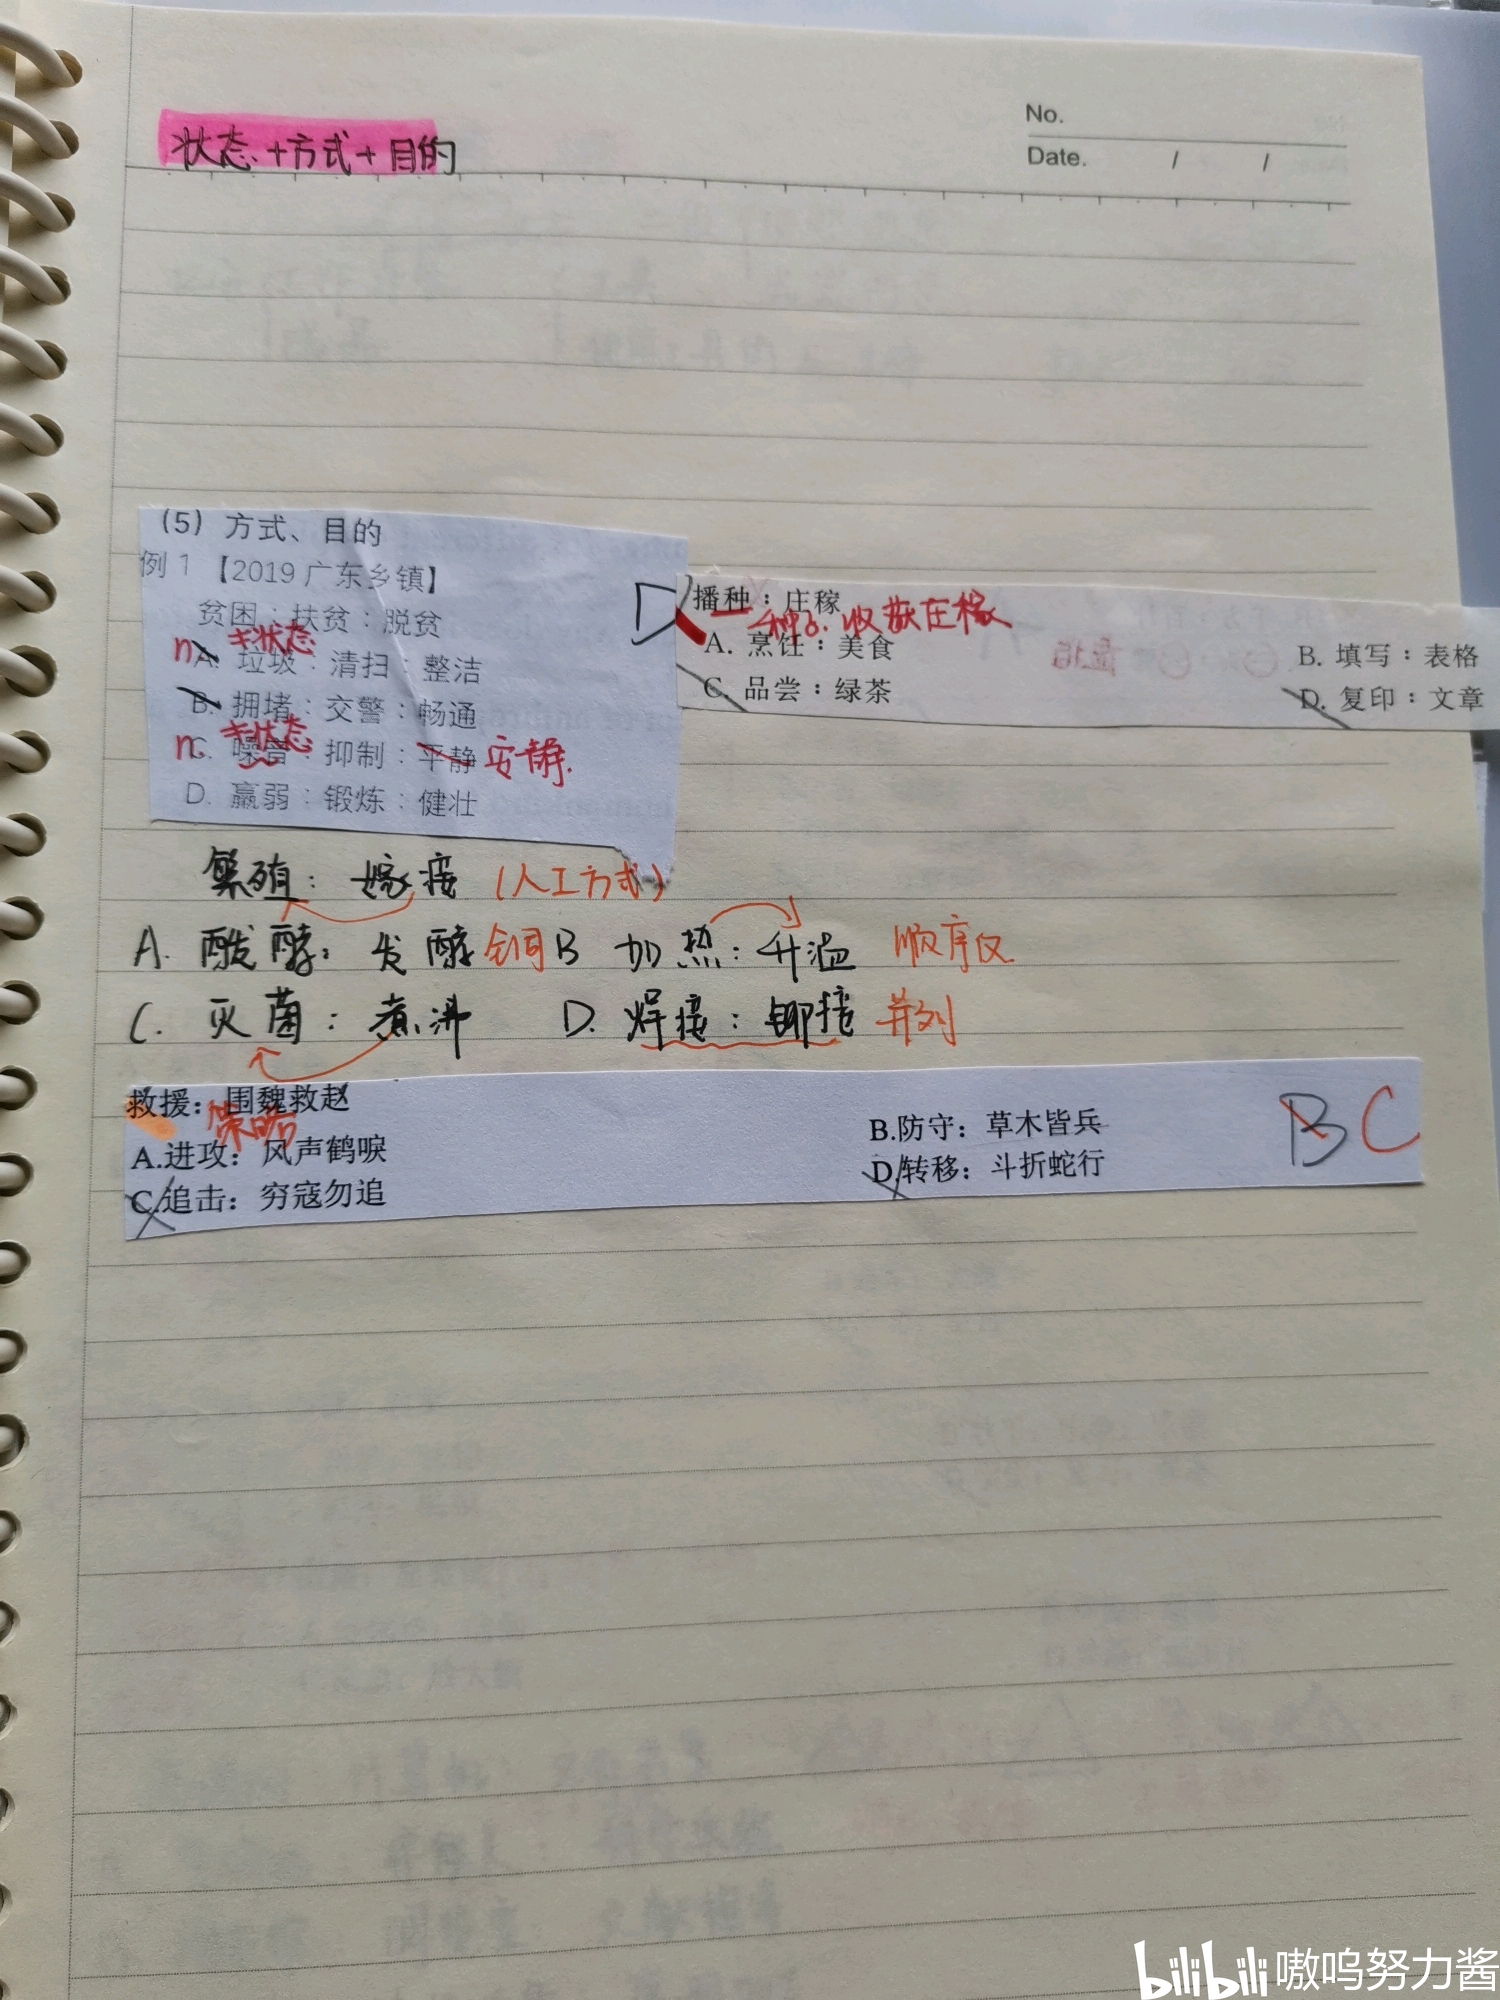 No.
Date. / /
状态+方式+目的
(5) 方式、目的
例 1 【2019 广东乡镇】
贫困：扶贫：脱贫
n 非状态
A. 垃圾：清扫：整洁
B. 拥堵：交警：畅通
n 非状态
C. 噪音：抑制：平静 安静.
D. 羸弱：锻炼：健壮
D
播种：庄稼
种子. 收获庄稼
A. 烹饪：美食
B. 填写：表格
C. 品尝：绿茶
D. 复印：文章
繁殖：嫁接 (人工方式)
A. 酦酵：发酵 全同 B 加热：升温 顺序反
C. 灭菌：煮沸 D. 焊接：铆接 并列
救援：围魏救赵
策略
A.进攻：风声鹤唳
B.防守：草木皆兵
C.追击：穷寇勿追
D.转移：斗折蛇行
B C
bilibili 嗷呜努力酱